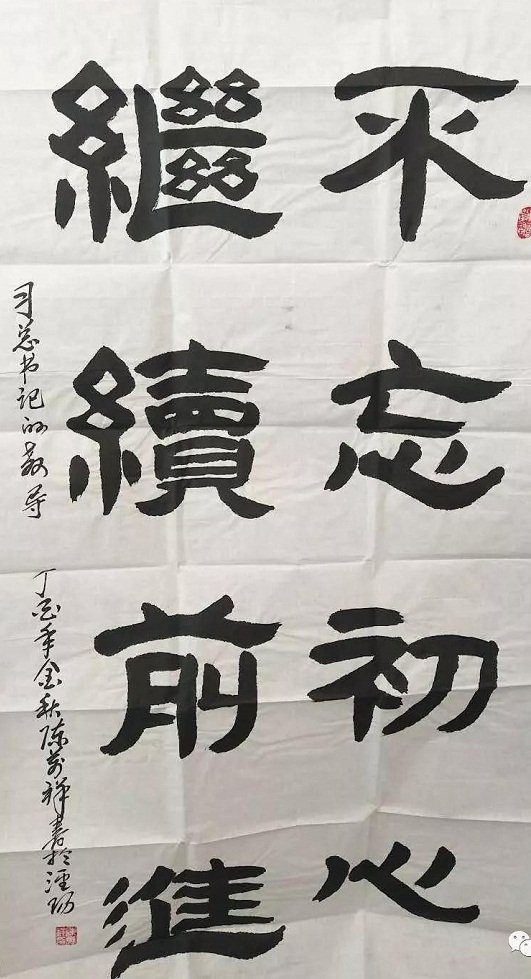 不忘初心
繼續前進
习总书记的教导
丁酉年金秋陈萬祥書於